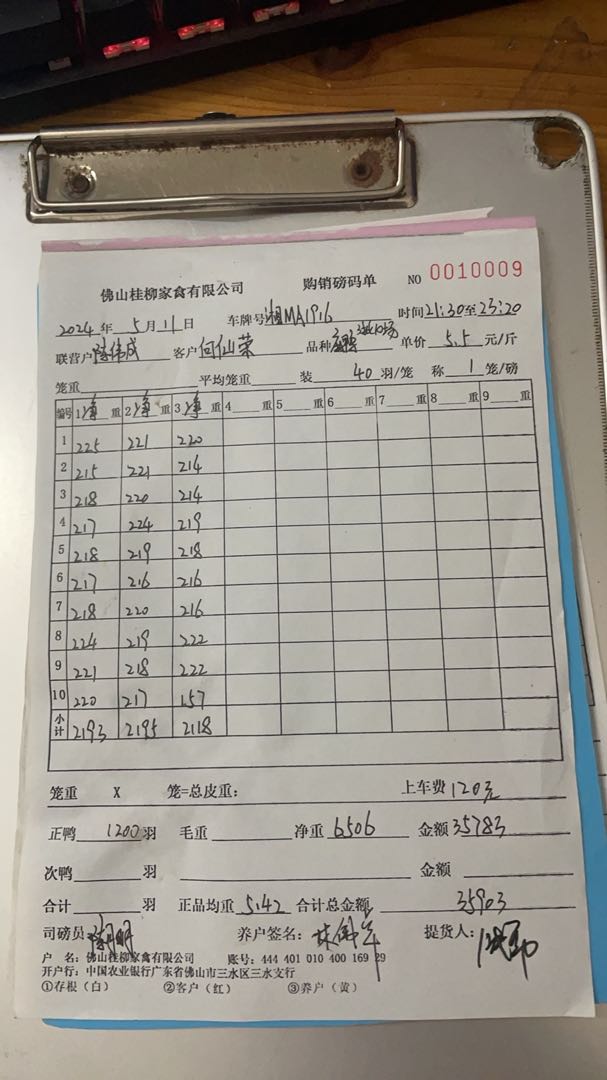 佛山桂柳家禽有限公司 购销磅码单 NO 0010009
2024年 5月 11日 车牌号 湘MA1916 时间 21:30至23:20
联营户 陈伟成 客户 何仙荣 品种 单价 5.5 元/斤
笼重 平均笼重 装 40 羽/笼 称 1 笼/磅
编号 1 净 重 2 净 重 3 净 重 4 重 5 重 6 重 7 重 8 重 9 重
1 225 221 220
2 215 221 214
3 218 220 214
4 217 224 219
5 218 219 218
6 217 216 216
7 218 220 216
8 224 219 222
9 221 218 222
10 220 217 157
小计 2193 2195 2118
笼重 X 笼=总皮重: 上车费 120元
正鸭 1200 羽 毛重 净重 6506 金额 35783
次鸭 羽 金额
合计 羽 正品均重 5.42 合计总金额 35903
司磅员: 养户签名: 提货人:
户 名: 佛山桂柳家禽有限公司 账号: 444 401 010 400 169 29
开户行: 中国农业银行广东省佛山市三水区三水支行
①存根(白) ②客户(红) ③养户(黄)